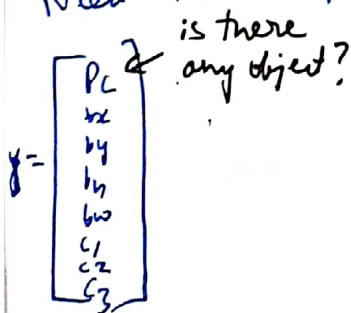 is there
any object?
y =
Pc
bx
by
bh
bw
c1
c2
c3